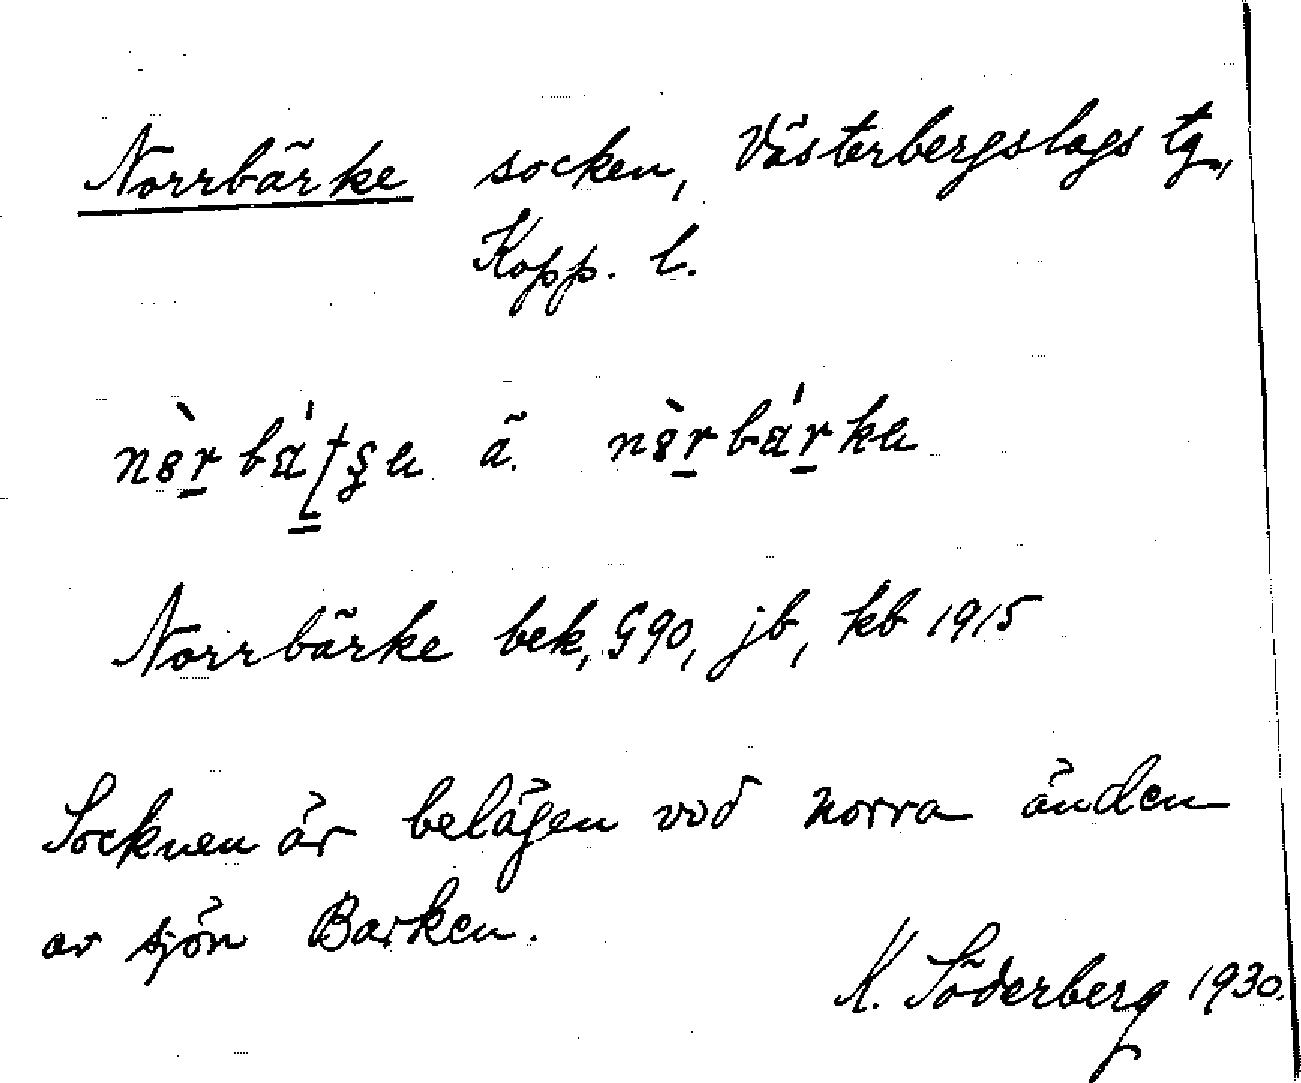 Norrbärke socken, Västerbergslags tg.,
Kopp. l.
ä.
Norrbärke bek, G90, jb, kb 1915
Socknen är belägen vid norra änden
av sjön Barken.
K. Söderberg 1930.